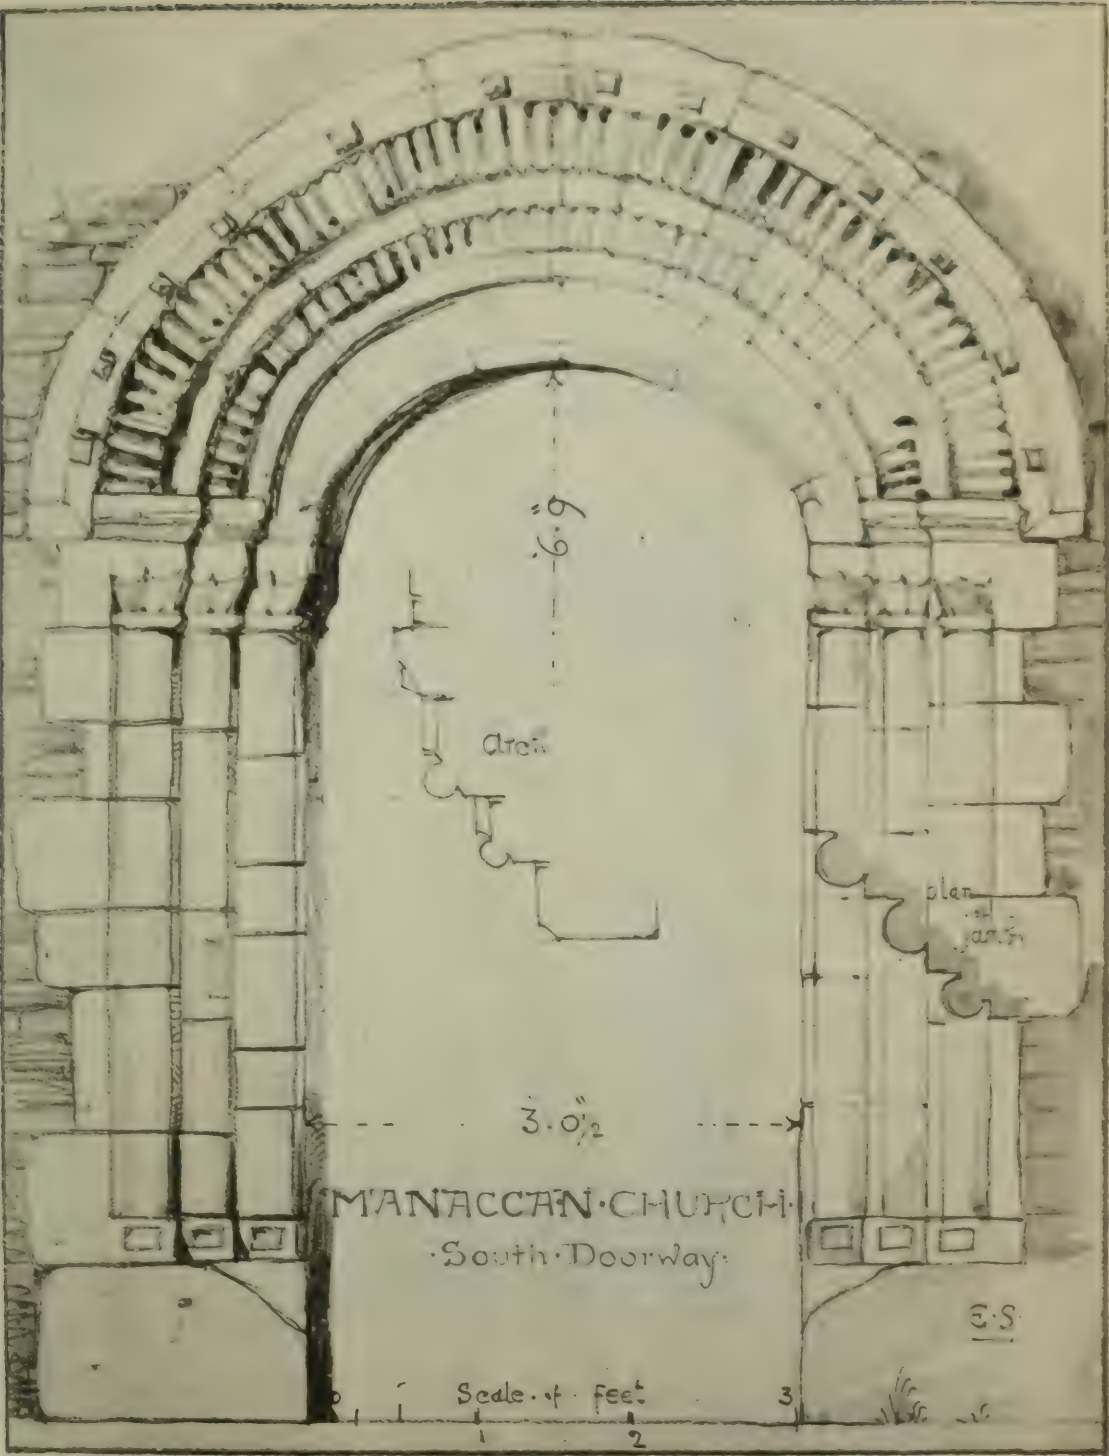 6'.9"
Arch
plan
of
jamb
3.0"½
MANACCAN·CHURCH·
·South·Doorway·
E·S·
Scale·of·feet
0 1 2 3